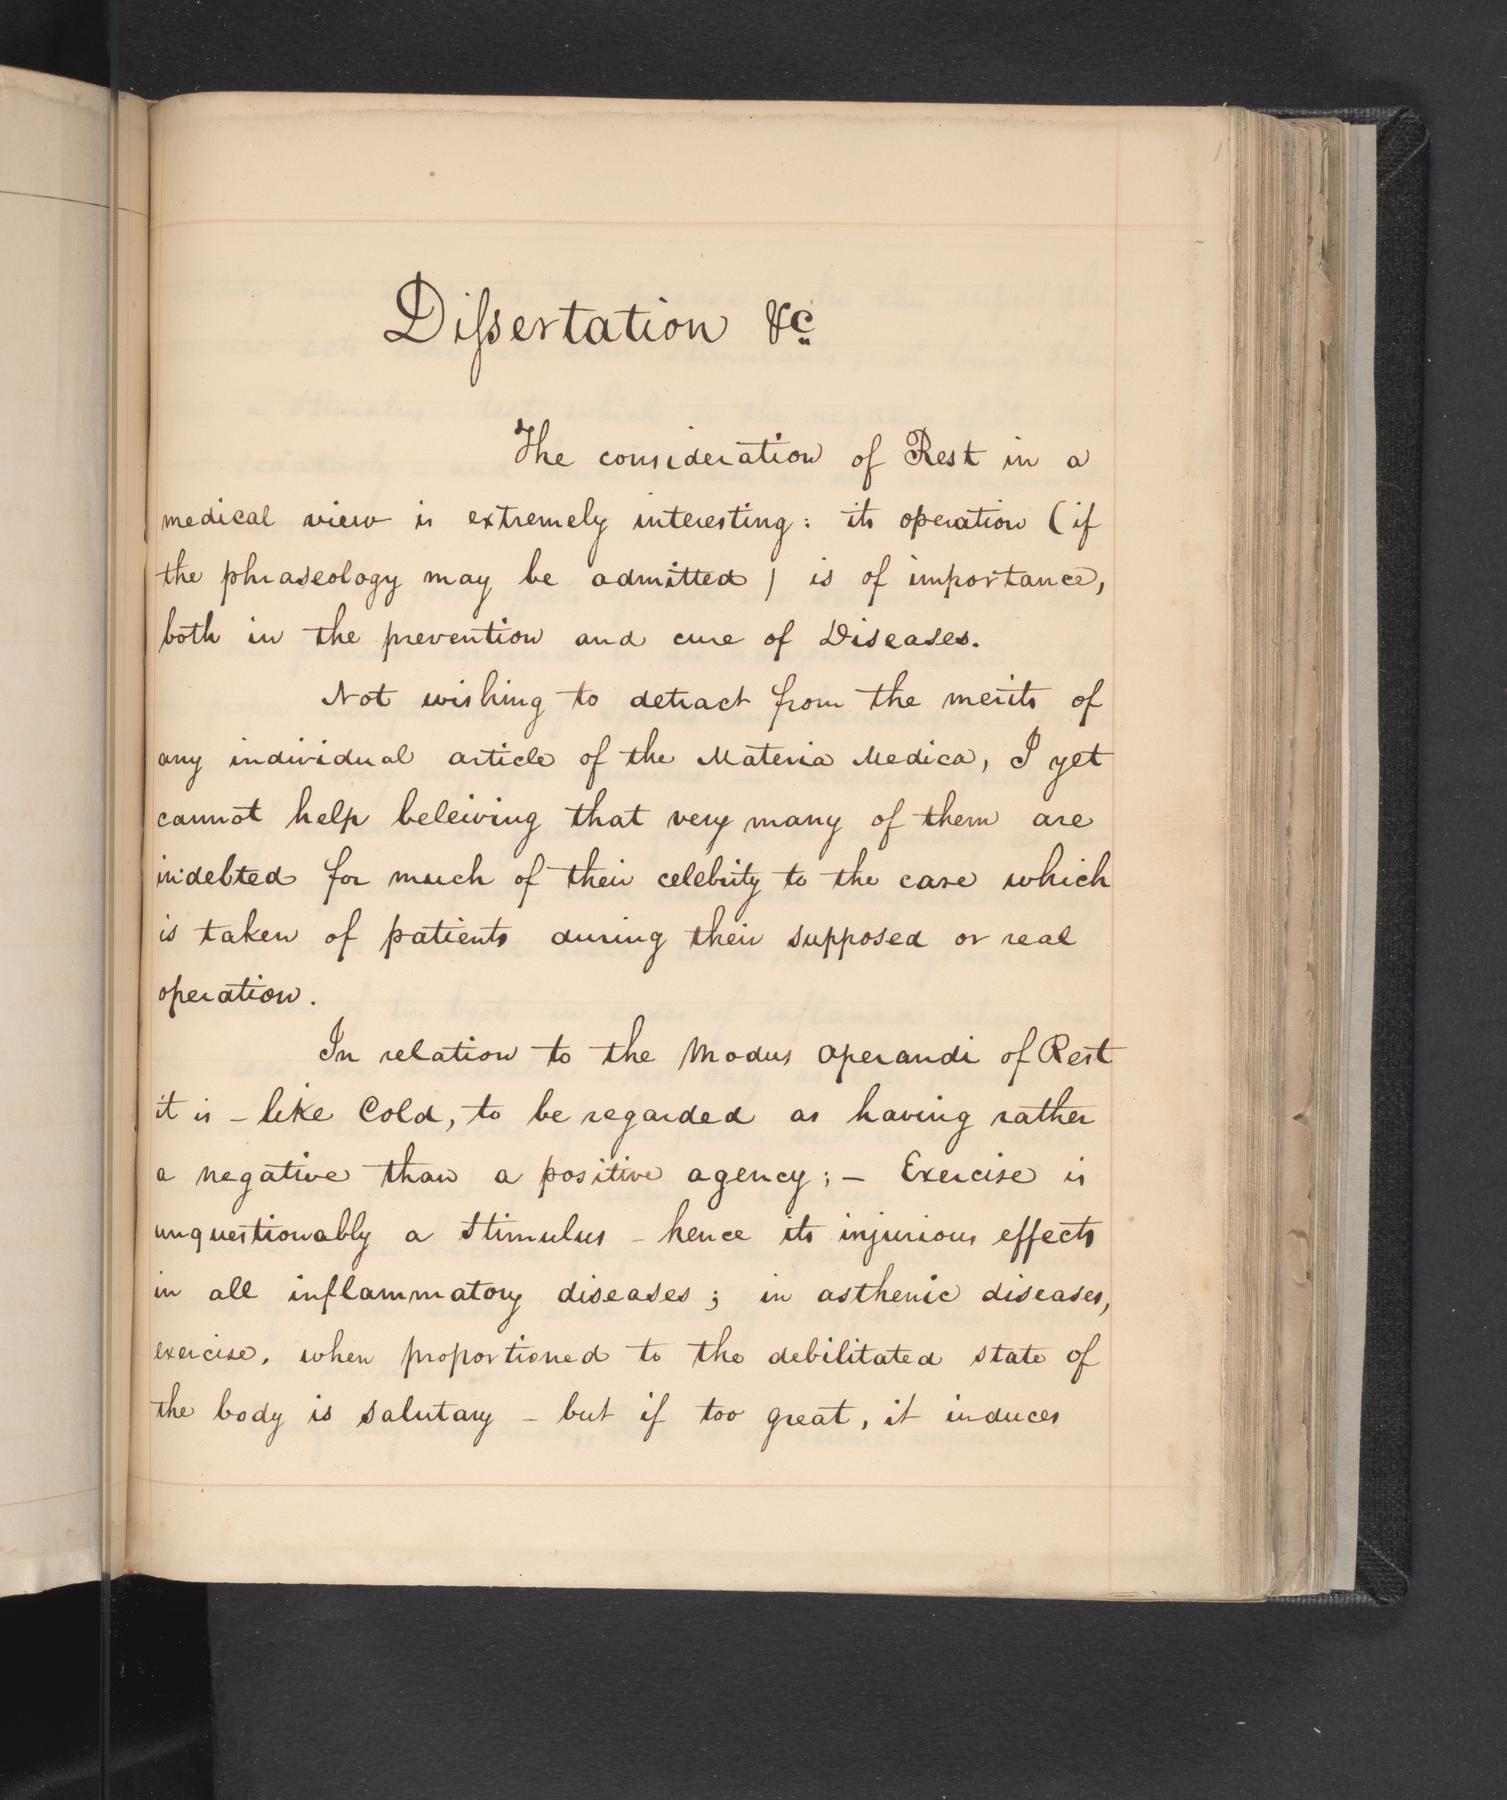 Diſsertation &c
The consideration of Rest in a
medical view is extremely interesting: its operation (if
the phraseology may be admitted) is of importance,
both in the prevention and cure of Diseases.
Not wishing to detract from the merits of
any individual article of the Materia Medica, I yet
cannot help beleiving that very many of them are
indebted for much of their celebrity to the care which
is taken of patients during their supposed or real
operation.
In relation to the Modus Operandi of Rest
it is - like Cold, to be regarded as having rather
a negative than a positive agency; - Exercise is
unquestionably a Stimulus - hence its injurious effects
in all inflammatory diseases; in asthenic diseases,
exercise, when proportioned to the debilitated state of
the body is salutary - but if too great, it induces